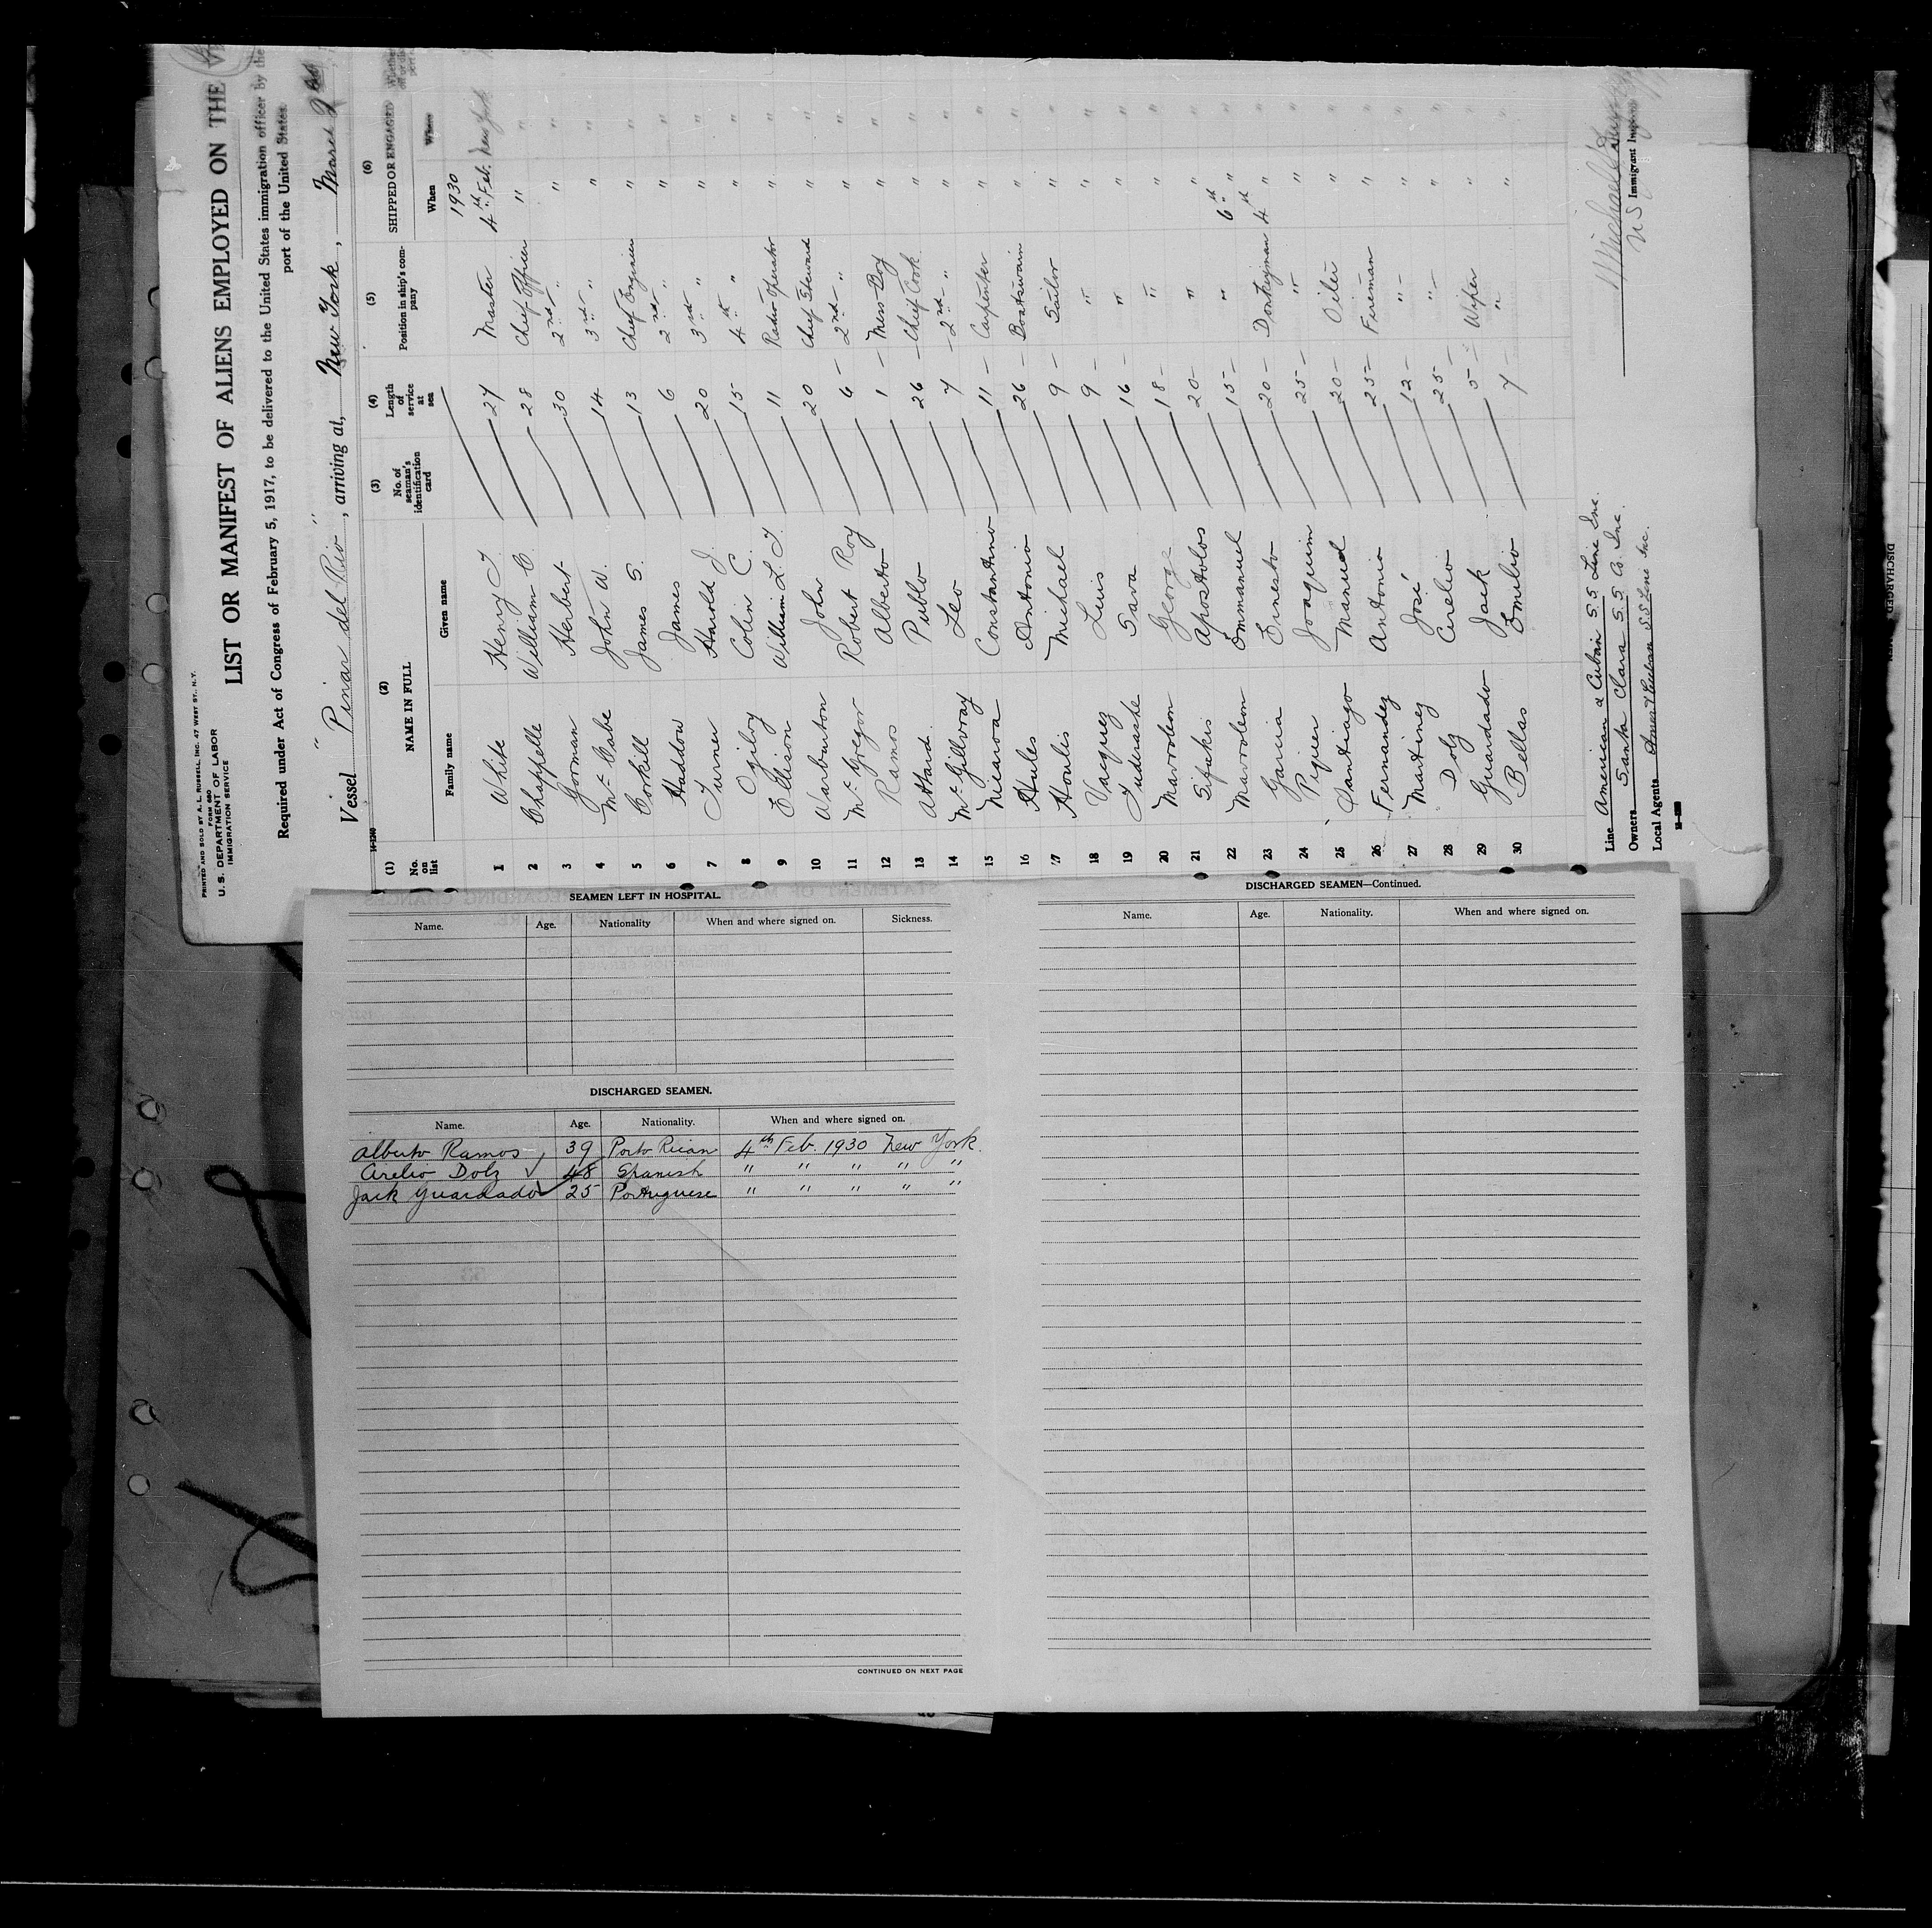 PRINTED AND SOLD BY A. L. RUSSELL, INC. 47 WEST ST. N.Y.
FORM 680
U. S. DEPARTMENT OF LABOR
IMMIGRATION SERVICE
LIST OR MANIFEST OF ALIENS EMPLOYED ON THE
Required under Act of Congress of February 5, 1917, to be delivered to the United States immigration officer by the
port of the United States
Vessel "Pinar del Rio", arriving at, New York, March
14-1240
(1) (2) (3) (4) (5) (6)
No. on list NAME IN FULL No. of seaman's identification card Length of service at sea Position in ship's company SHIPPED OR ENGAGED
Family name Given name When Where
1930
1 White Henry T. 27 Master 4th Feb. New York
2 Chappelle William C. 28 Chief Officer " "
3 Gorman Herbert 30 2nd " " "
4 McCabe John W. 14 3rd " " "
5 Corkill James S. 13 Chief Engineer " "
6 Haddow James 6 2nd " " "
7 Turner Harold J. 20 3rd " " "
8 Ogilvy Colin C. 15 4th " " "
9 Ellison William L. T. 11 Radio Operator " "
10 Warburton John 20 Chief Steward " "
11 McGregor Robert Roy 6 – 2nd " " "
12 Ramos Alberto 1 – Mess Boy " "
13 Attard. Publo 26 – Chief Cook " "
14 McGillvray Leo 7 – 2nd " " "
15 Constantino 11 – Carpenter " "
16 Hules Antonio 26 – Boatswain " "
17 Houlis Michael 9 – Sailor " "
18 Vasquez Luis 9 – " " "
19 Sava 16 – " " "
20 Mavroleon George 18 – " " "
21 Sifakis Apostolos 20 – " " "
22 Mavroleon Emmanuel 15 – " 6th " "
23 Garcia Ernesto 20 – Donkeyman 4th " "
24 Piquer Joaquim 25 – " " "
25 Santiago Manuel 20 – Oiler " "
26 Fernandez Antonio 25 – Fireman " "
27 Martinez José 12 – " " "
28 Dolz Cirelio 25 – " " "
29 Guardado Jack 5 – Wiper " "
30 Bellas Emilio 7 – " " "
Line American & Cuban S.S Line Inc.
Owners Santa Clara S.S Co. Inc.
Local Agents S.S Line Inc.
U S Immigrant Inspector
SEAMEN LEFT IN HOSPITAL.
Name. Age. Nationality When and where signed on. Sickness.
DISCHARGED SEAMEN.
Name. Age. Nationality. When and where signed on.
Alberto Ramos 39 Porto Rican 4th Feb. 1930 New York.
Cirelio Dolz 48 Spanish " " " " "
Jack Guardado 25 Portuguese " " " " "
CONTINUED ON NEXT PAGE
DISCHARGED SEAMEN—Continued.
Name. Age. Nationality. When and where signed on.
DISCHARGED